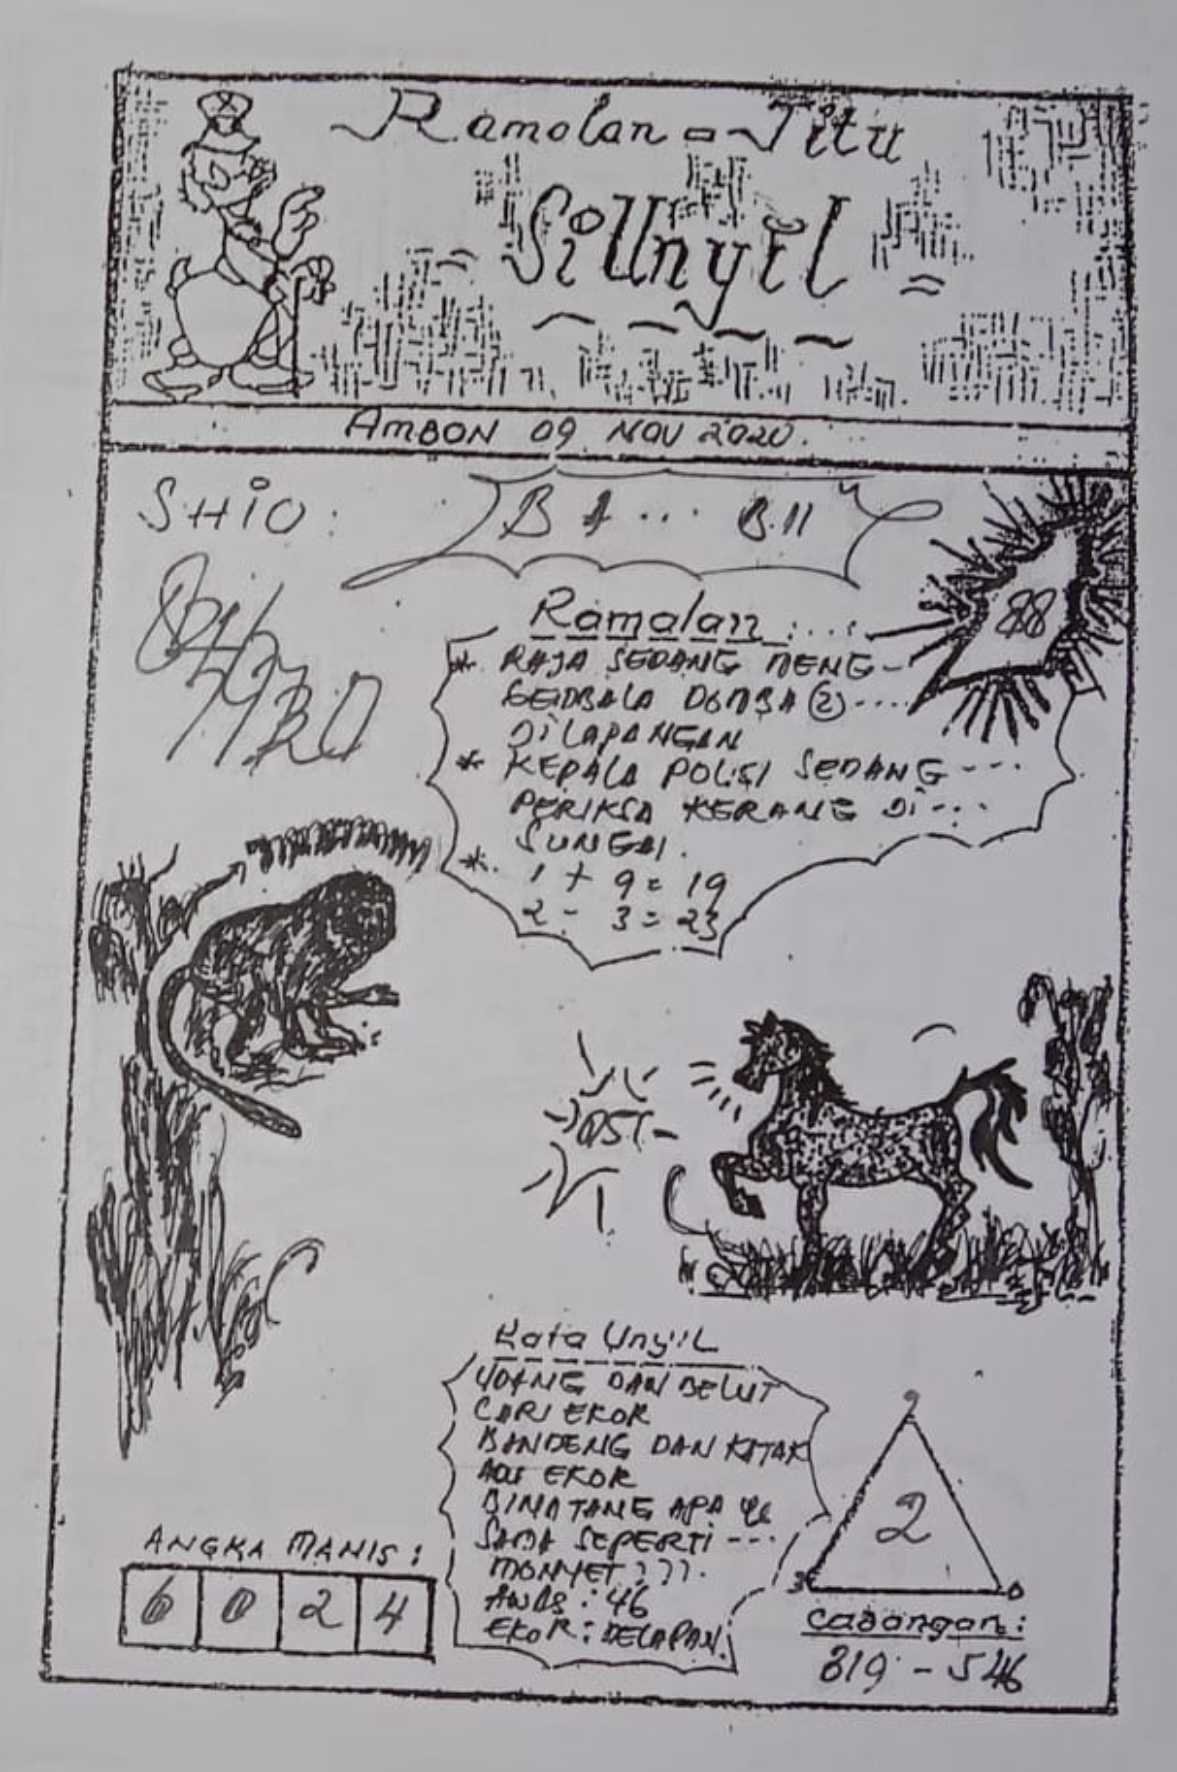 Ramalan = Jitu
Si Unyil
AMBON 09 NOV 2020.
SHIO:
B 1 ... B.11
88
Ramalan:....
* RAJA SEDANG MENG-
GEMBALA DOMBA (2)....
DI LAPANGAN
* KEPALA POLISI SEDANG ---
PERIKSA KERANG DI...
SUNGAI.
* 1 + 9 = 19
2 - 3 = 23
Kata Unyil
UDANG DAN BELUT
CARI EKOR
BANDENG DAN KATAK
ADU EKOR
BINATANG APA YG
SAMA SEPERTI ---
MONYET ???.
AWAS: 46
EKOR: DELAPAN.
ANGKA MANIS:
6 0 2 4
9
2
3 0
Cadangan:
819 - 546